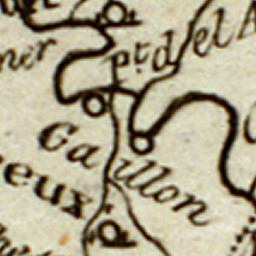 Pt. d el A
Gaillon
eux